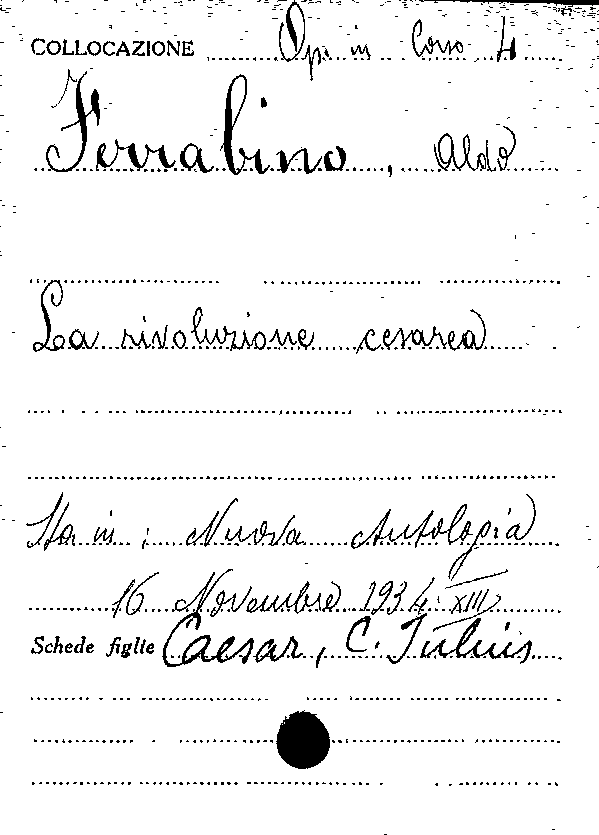 COLLOCAZIONE Op. in Corso 4
Ferrabino, Aldo
La rivoluzione cesarea
Sta in: Nuova Antologia
16 Novembre 1934. XIII
Schede figlie Caesar, C. Iulius